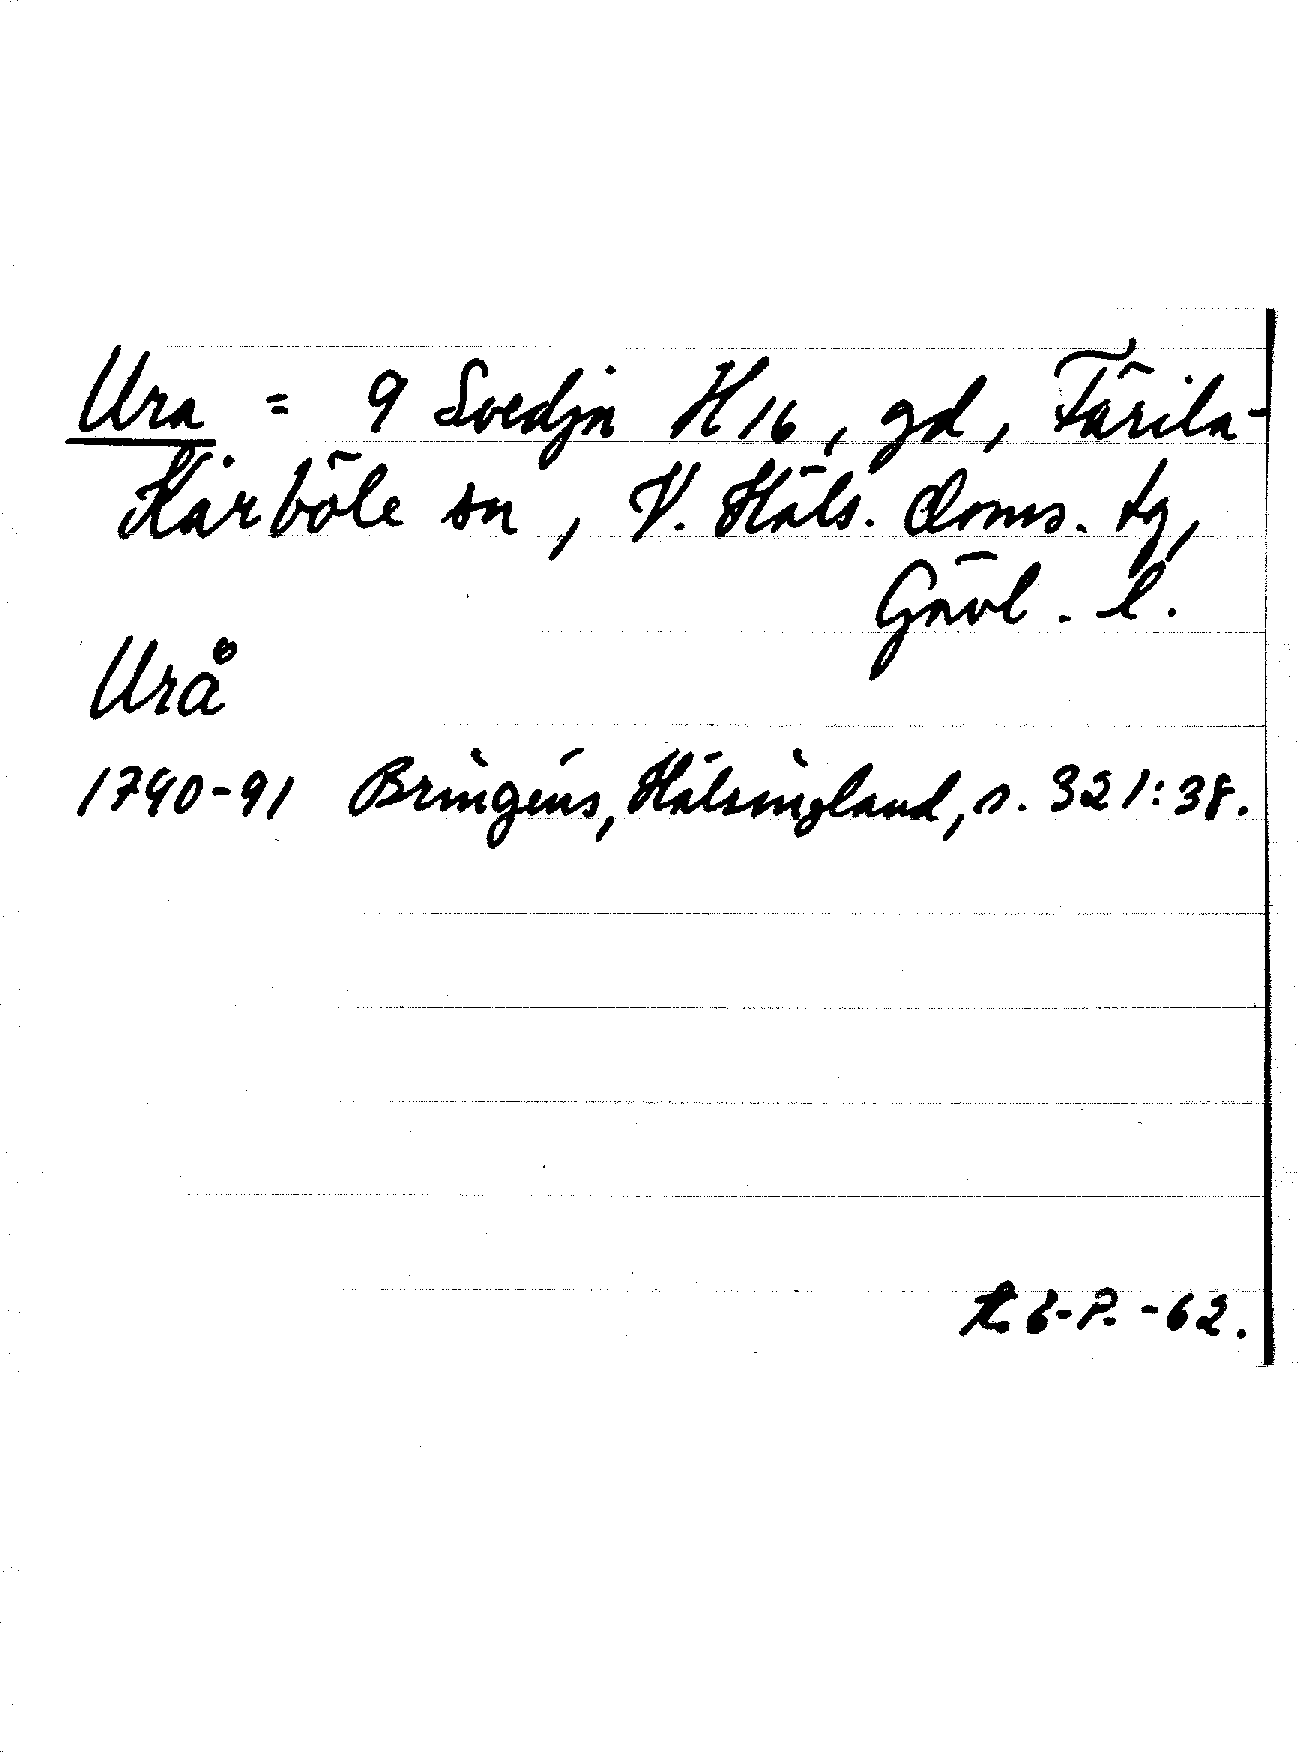 Ura = 9 Svedja H 16, gd, Färila-
Kårböle sn, V. Häls. Doms. tg,
Gävl. l.
Urå
1790-91 Bringéus, Hälsingland, s. 321:38.
-62.